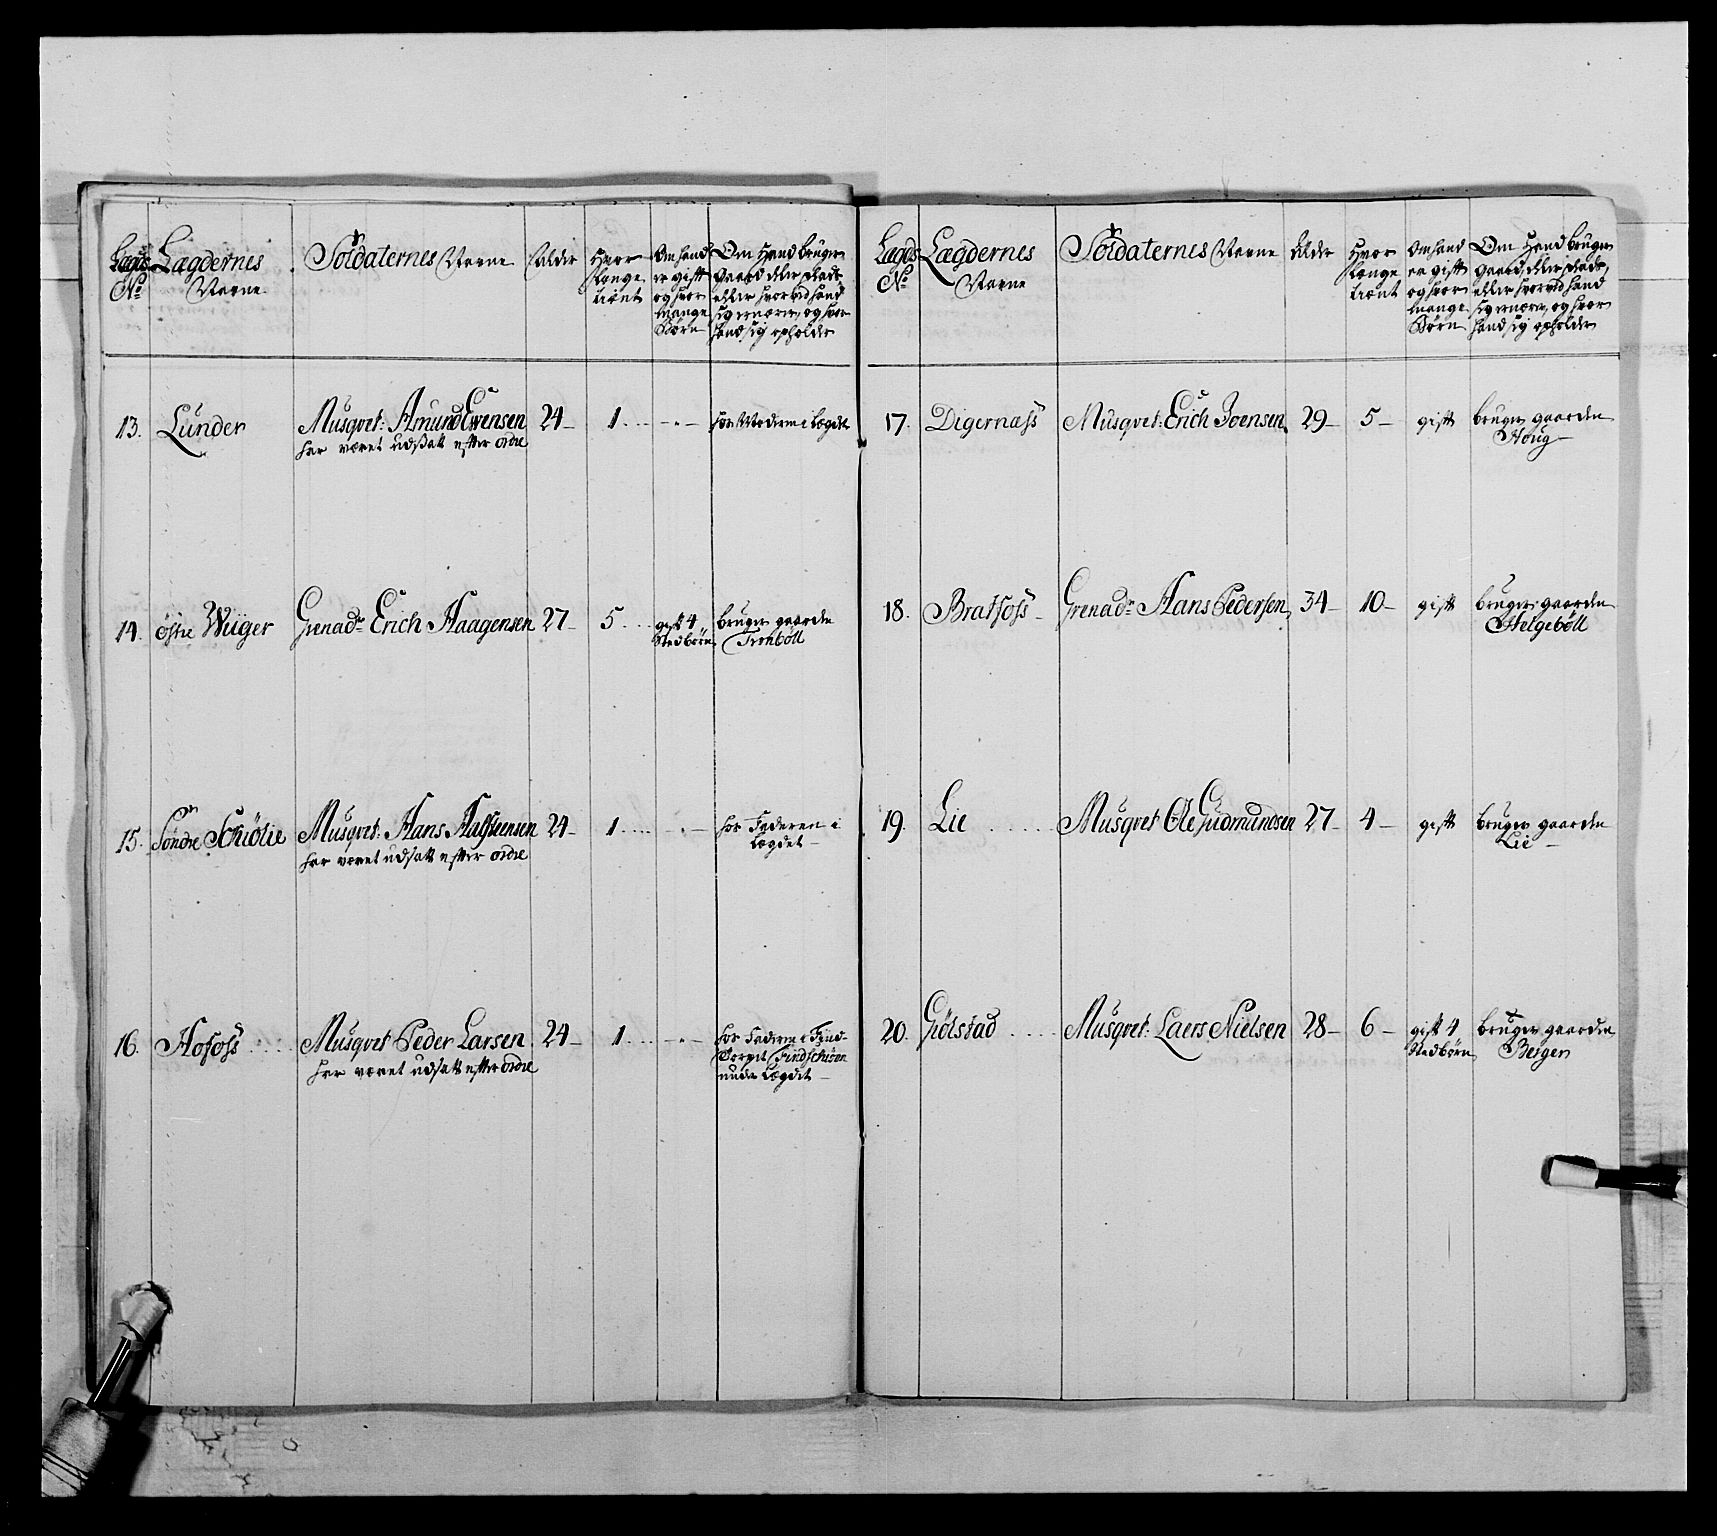 Lægds No
Lægdernes Navne
Soldaternes Navne
Alder
Hvor længe tient
Om hand er gift og hvor mange Børn
Om Hand bruger gaard eller stæde, eller hvorved hand sig ernærer, og hvor hand sig opholder
13. Lunder
Musqvet: Amund Evensen 24 1
har været udsatt efter ordre
hos Moderen i Lægdet
14. östre Wiiger
Grenadr Erich Haagensen 27 5
gift 4 Stedbörn
bruger gaarden
15. Söndre Schiölie
Musqvet: Hans Halsteensen 24 1
har været udsatt efter ordre
hos Faderen i
Lægdet
16. Hofoss
Musqvet Peder Larsen 24 1
har været udsatt efter ordre
hos Faderen i
under Lægdet
Lægds No
Lægdernes Navne
Soldaternes Navne
Alder
Hvor længe tient
Om hand er gift og hvor mange Börn
Om Hand bruger gaard, eller stæde, eller hvorved hand sig ernærer, og hvor hand sig opholder
17. Digernæss Musqvet: Erich Joensen 29 5 gift bruger gaarden
Houg
18. Bratfoss Grenadr Hans Pedersen 34 10 gift bruger gaarden
Helgeböll
19. Lie Musqvet Ole Gudmundsen 27 4 gift bruger gaarden
Lie
20. Giölstad Musqvet: Laers Nielsen 28 6 gift 4 Stedbörn bruger gaarden
Berger